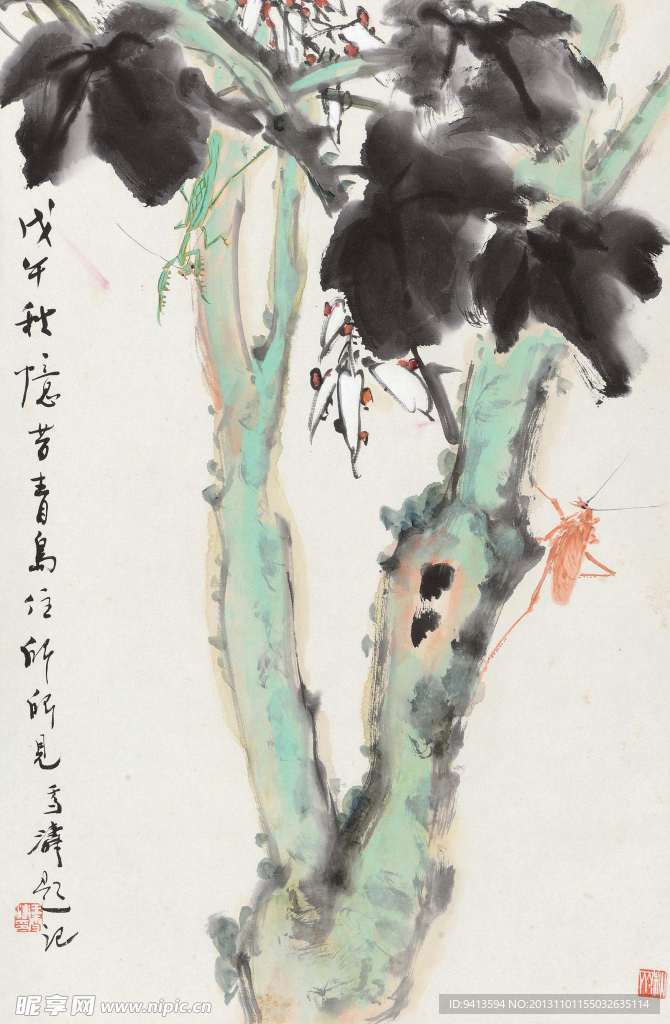 戊午秋憶昔青島住所所見雪濤題記
昵享网 www.nipic.cn
ID:9413594 NO:20131101155032635114